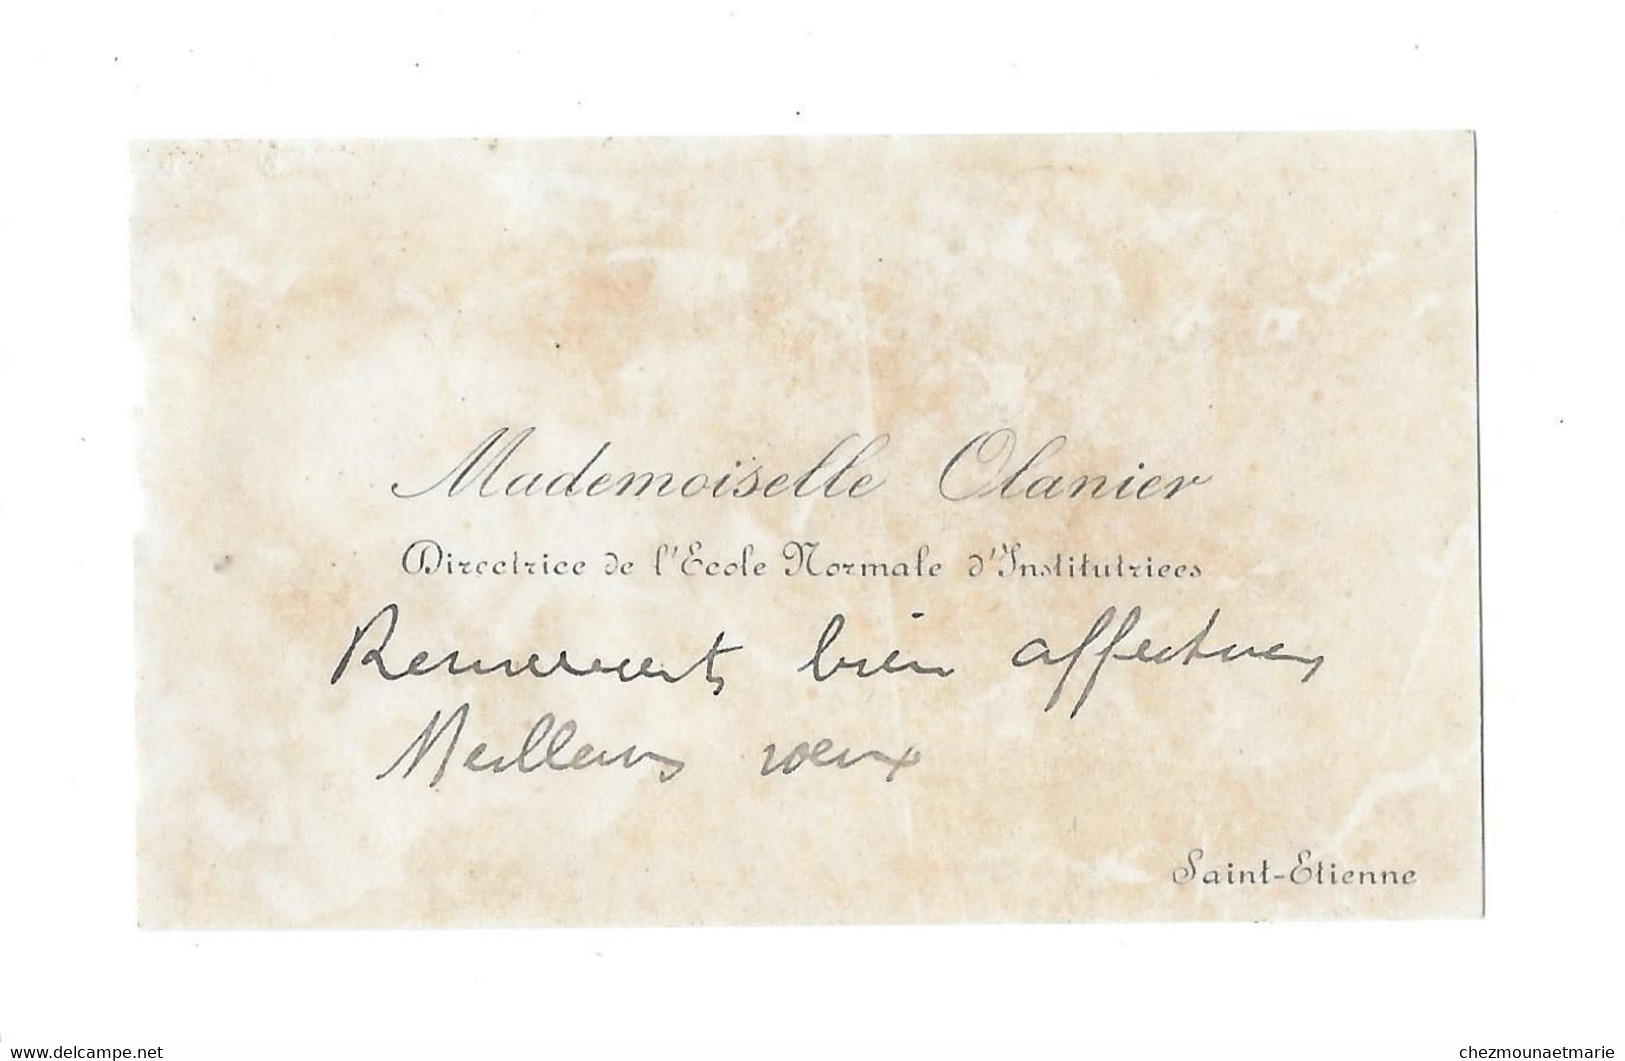 Mademoiselle Olanier
Directrice de l'Ecole Normale d'Institutrices
Remerciements bien affectueux
Meilleurs voeux
Saint-Etienne
www.delcampe.net
chezmounaetmarie